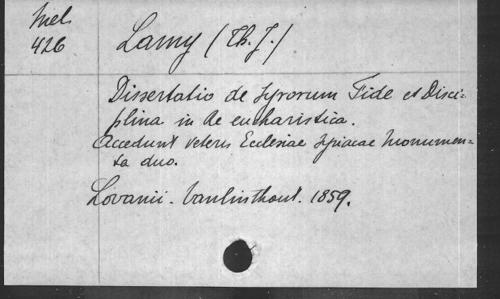 Mel.
426
Lamy (Th. J.)
Dissertatio de Syrorum Fide et Disci-
plina in Re eucharistica.
Accedunt veteris Ecclesiae Syriacae monumen-
ta duo.
Lovanii. Vanlinthout. 1859.